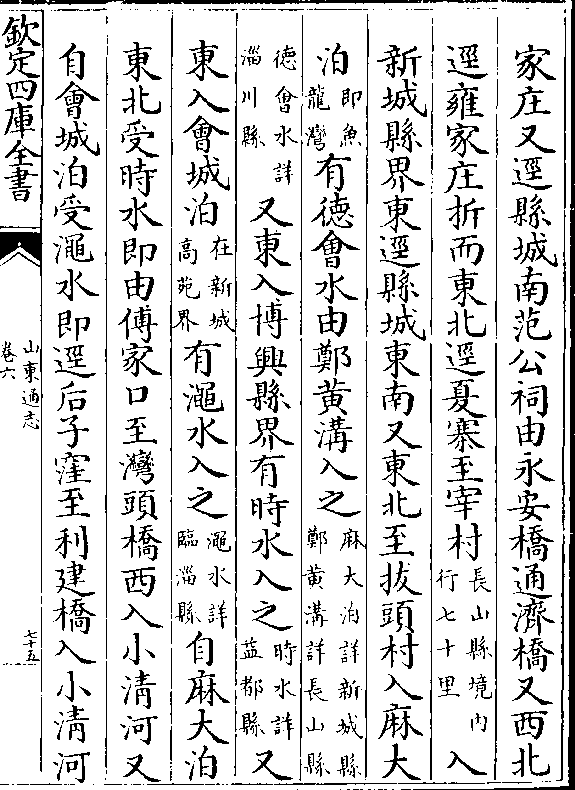 家庄又逕縣城南范公祠由永安橋通濟橋又西北
逕雍家庄折而東北逕夏寨至宰村長山縣境内行七十里入
新城縣界東逕縣城東南又東北至拔頭村入麻大
泊即魚龍灣有德會水由鄭黄溝入之麻大泊詳新城縣鄭黄溝詳長山縣
德會水詳淄川縣又東入博興縣界有時水入之時水詳益都縣又
東入會城泊在新城高苑界有澠水入之澠水詳臨淄縣自麻大泊
東北受時水即由傅家口至灣頭橋西入小清河又
自會城泊受澠水即逕后子窪至利建橋入小清河
欽定四庫全書
山東通志
卷六
七十五